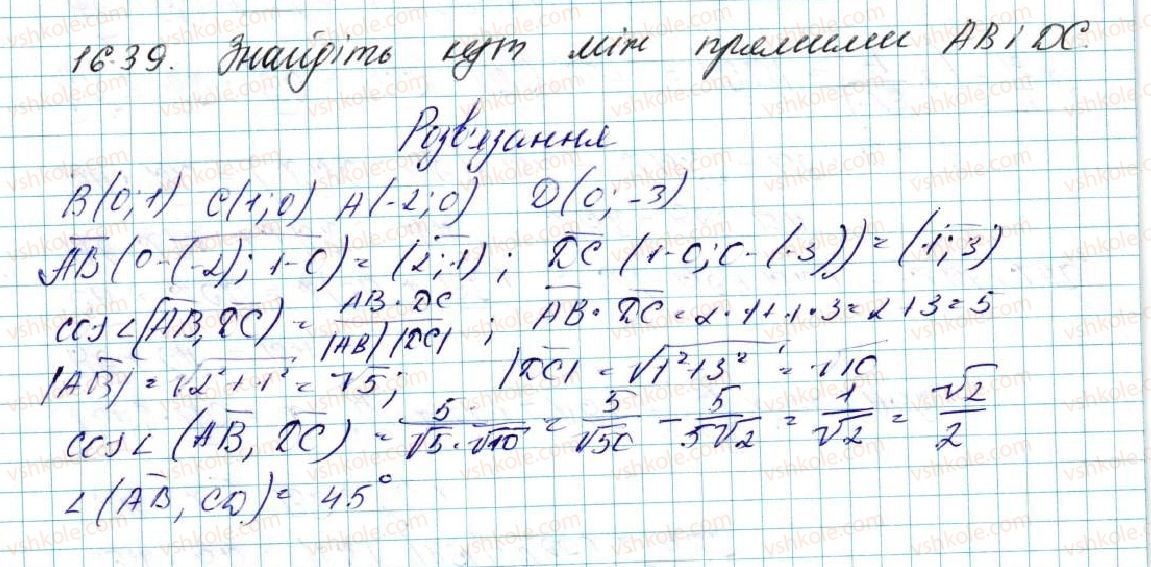 16.39. Знайдіть кут між прямими AB і DC.
Розв'язання
B(0;1) C(1;0) A(-2;0) D(0;-3)
AB(0-(-2);1-0)=(2;-1); DC(1-0;0-(-3))=(-1;3)
cos∠(AB,DC)=AB·DC/|AB||DC|; AB·DC=2·1+1·3=2+3=5
|AB|=√2²+1²=√5; |DC|=√1²+3²=√10
cos∠(AB,DC)=5/√5·√10=5/√50=5/5√2=1/√2=√2/2
∠(AB,CD)=45°